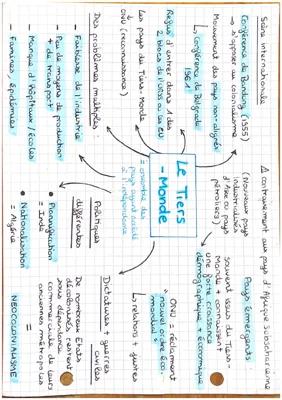 Scène internationale
Conférence de Bandung (1955)
→ s'opposer au colonialisme
Mouvement des pays non-alignés
↳ Conférence de Belgrade
1961
Refus d'entrer dans 1 des
2 blocs de l'URSS ou des EU
Les pays du Tiers-Monde
↓
ONU (reconnaissance)
Des problèmes multiples :
- Faiblesse de l'industrie
- Peu de moyens de production
+ de transport
- Manque d'hôpitaux / écoles
- Famines, épidémies
Le Tiers
- Monde
= ensemble des
pays ayant accédé
à l'indépendance
Politiques
différentes
• Planification
= Inde
• Nationalisation
= Algérie
≠ contrairement aux pays d'Afrique subsaharienne
(Nouveaux pays
industrialisés
d'Asie ou pays
pétroliers)
Pays émergents
souvent issus du Tiers-
Monde + connaissent
une forte croissance
démographique + économique
ONU = réclament
"nouvel ordre éco.
mondial"
↳ relations + justes
Dictatures + guerres
civiles
De nombreux Etats
décolonisés restent
sous dépendance
commerciale de leurs
anciennes métropoles
=
NEOCOLONIALISME